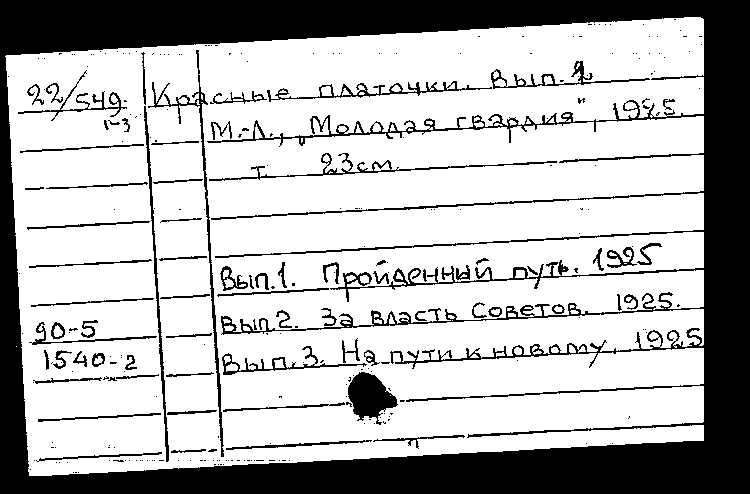 22/549 Красные платочки. Вып.
1-3
М.-Л., „Молодая гвардия", 1925.
т. 23см.
Вып.1. Пройденный путь. 1925
90-5 Вып2. За власть Советов. 1925.
1540-2 Вып.3. На пути к новому. 1925